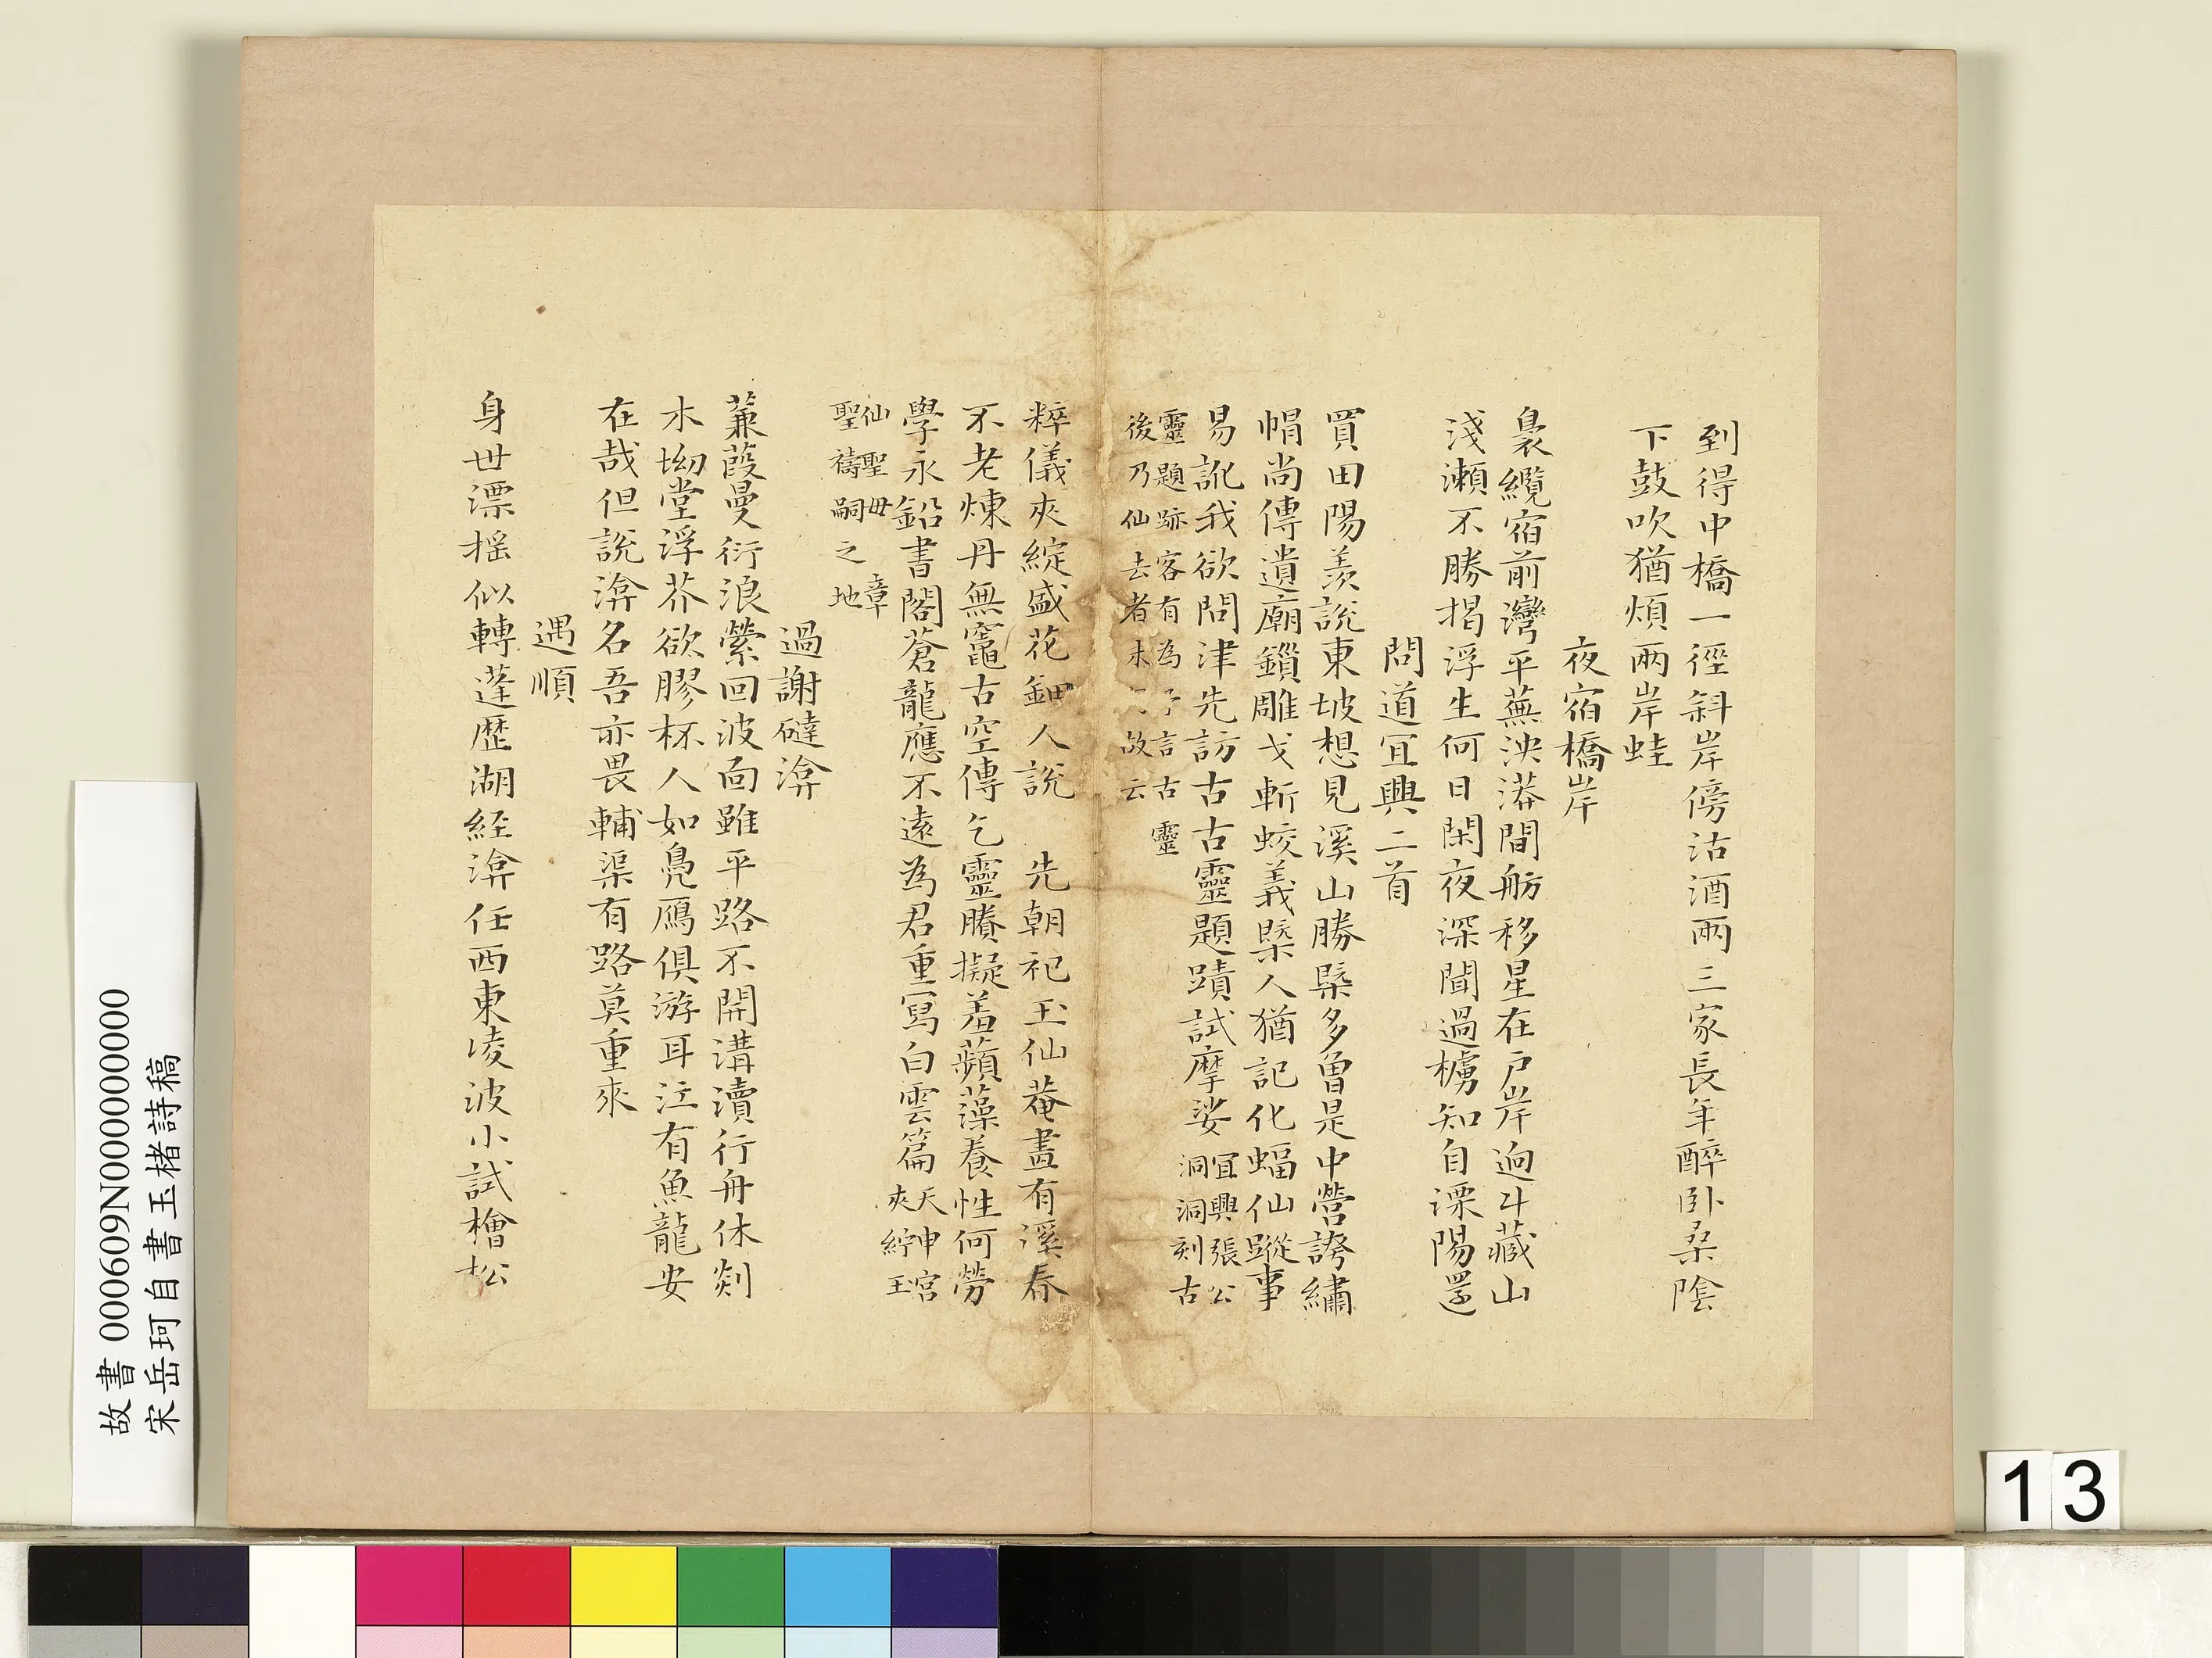 到得中橋一徑斜岸傍沽酒兩三家長年醉卧桑陰
下鼓吹猶煩兩岸蛙
夜宿橋岸
裊纜宿前灣平蕪泱漭間舫移星在戶岸逈斗藏山
淺瀨不勝揭浮生何日閑夜深聞過櫓知自溧陽還
問道宜興二首
買田陽羨說東坡想見溪山勝槩多曾是中營誇繡
帽尚傳遺廟鎻雕戈斬蛟義槩人猶記化蝠仙蹤事
易訛我欲問津先訪古古靈題蹟試摩娑
宜興張公
洞洞刻古
靈題跡客有為予言古靈
後乃仙去者未 故云
粹儀夾綻盛花鈿人說 先朝祀玉仙菴畫有溪春
不老煉丹無竈古空傳乞靈賸擬羞蘋藻養性何勞
學永鉛書閣蒼龍應不遠為君重寫白雲篇
天申宮
夾紵王
仙聖毋 章
聖禱嗣之地
過謝磓渰
蒹葭曼衍浪縈回波面雖平路不開溝瀆行舟休剡
木坳堂浮芥欲膠杯人如鳧鴈俱游耳江有魚龍安
在哉但說渰名吾亦畏輔渠有路莫重來
遇順
身世漂揺似轉蓬歷湖經渰任西東凌波小試檜松
故書 000609N000000000
宋岳珂自書玉楮詩稿
13